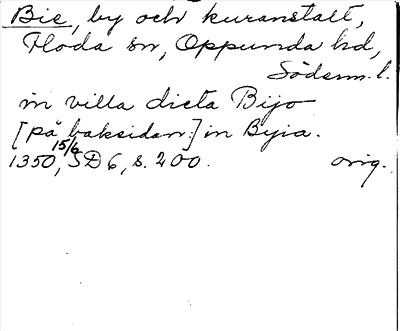 Bie, by och kuranstalt,
Floda sn, Oppunda hd,
Söderm. l.
in villa dicta Bijo
[på baksidan:] in Byia.
1350, 15/6, SD 6, s. 200. orig.